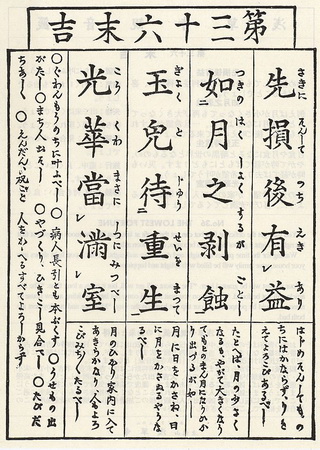 第三十六末吉
さきに そんして のち えき あり
先損後有益
はじめそんしてもの
ちにはかならず、りを
えてよろこびあるべし
つきの はくしよくするが ごとし
如月之剥蝕
たとへば、月の少さく
なるもやがて大きくなり
てもとのまん月になりひか
り出づるがごとし
ぎよく と じゆう せいを まつて
玉兎待重生
月に日をかさね、日
に月をかさぬるやうな
るべし
こう くわ まさに しつに みつべし
光華當満室
月のひかり家内に入て
あきらかなり、人もよろ
こびみちくたるべし
○ぐわんもうのちに叶ふべし ○病人長引とも本ぶくす ○うせもの出
がたし ○まち人出べし ○やづくり、ひきこし見合べし ○たびだ
ちあし ○えんだん、祝ごと 人をかゝへるすべてよろしからず